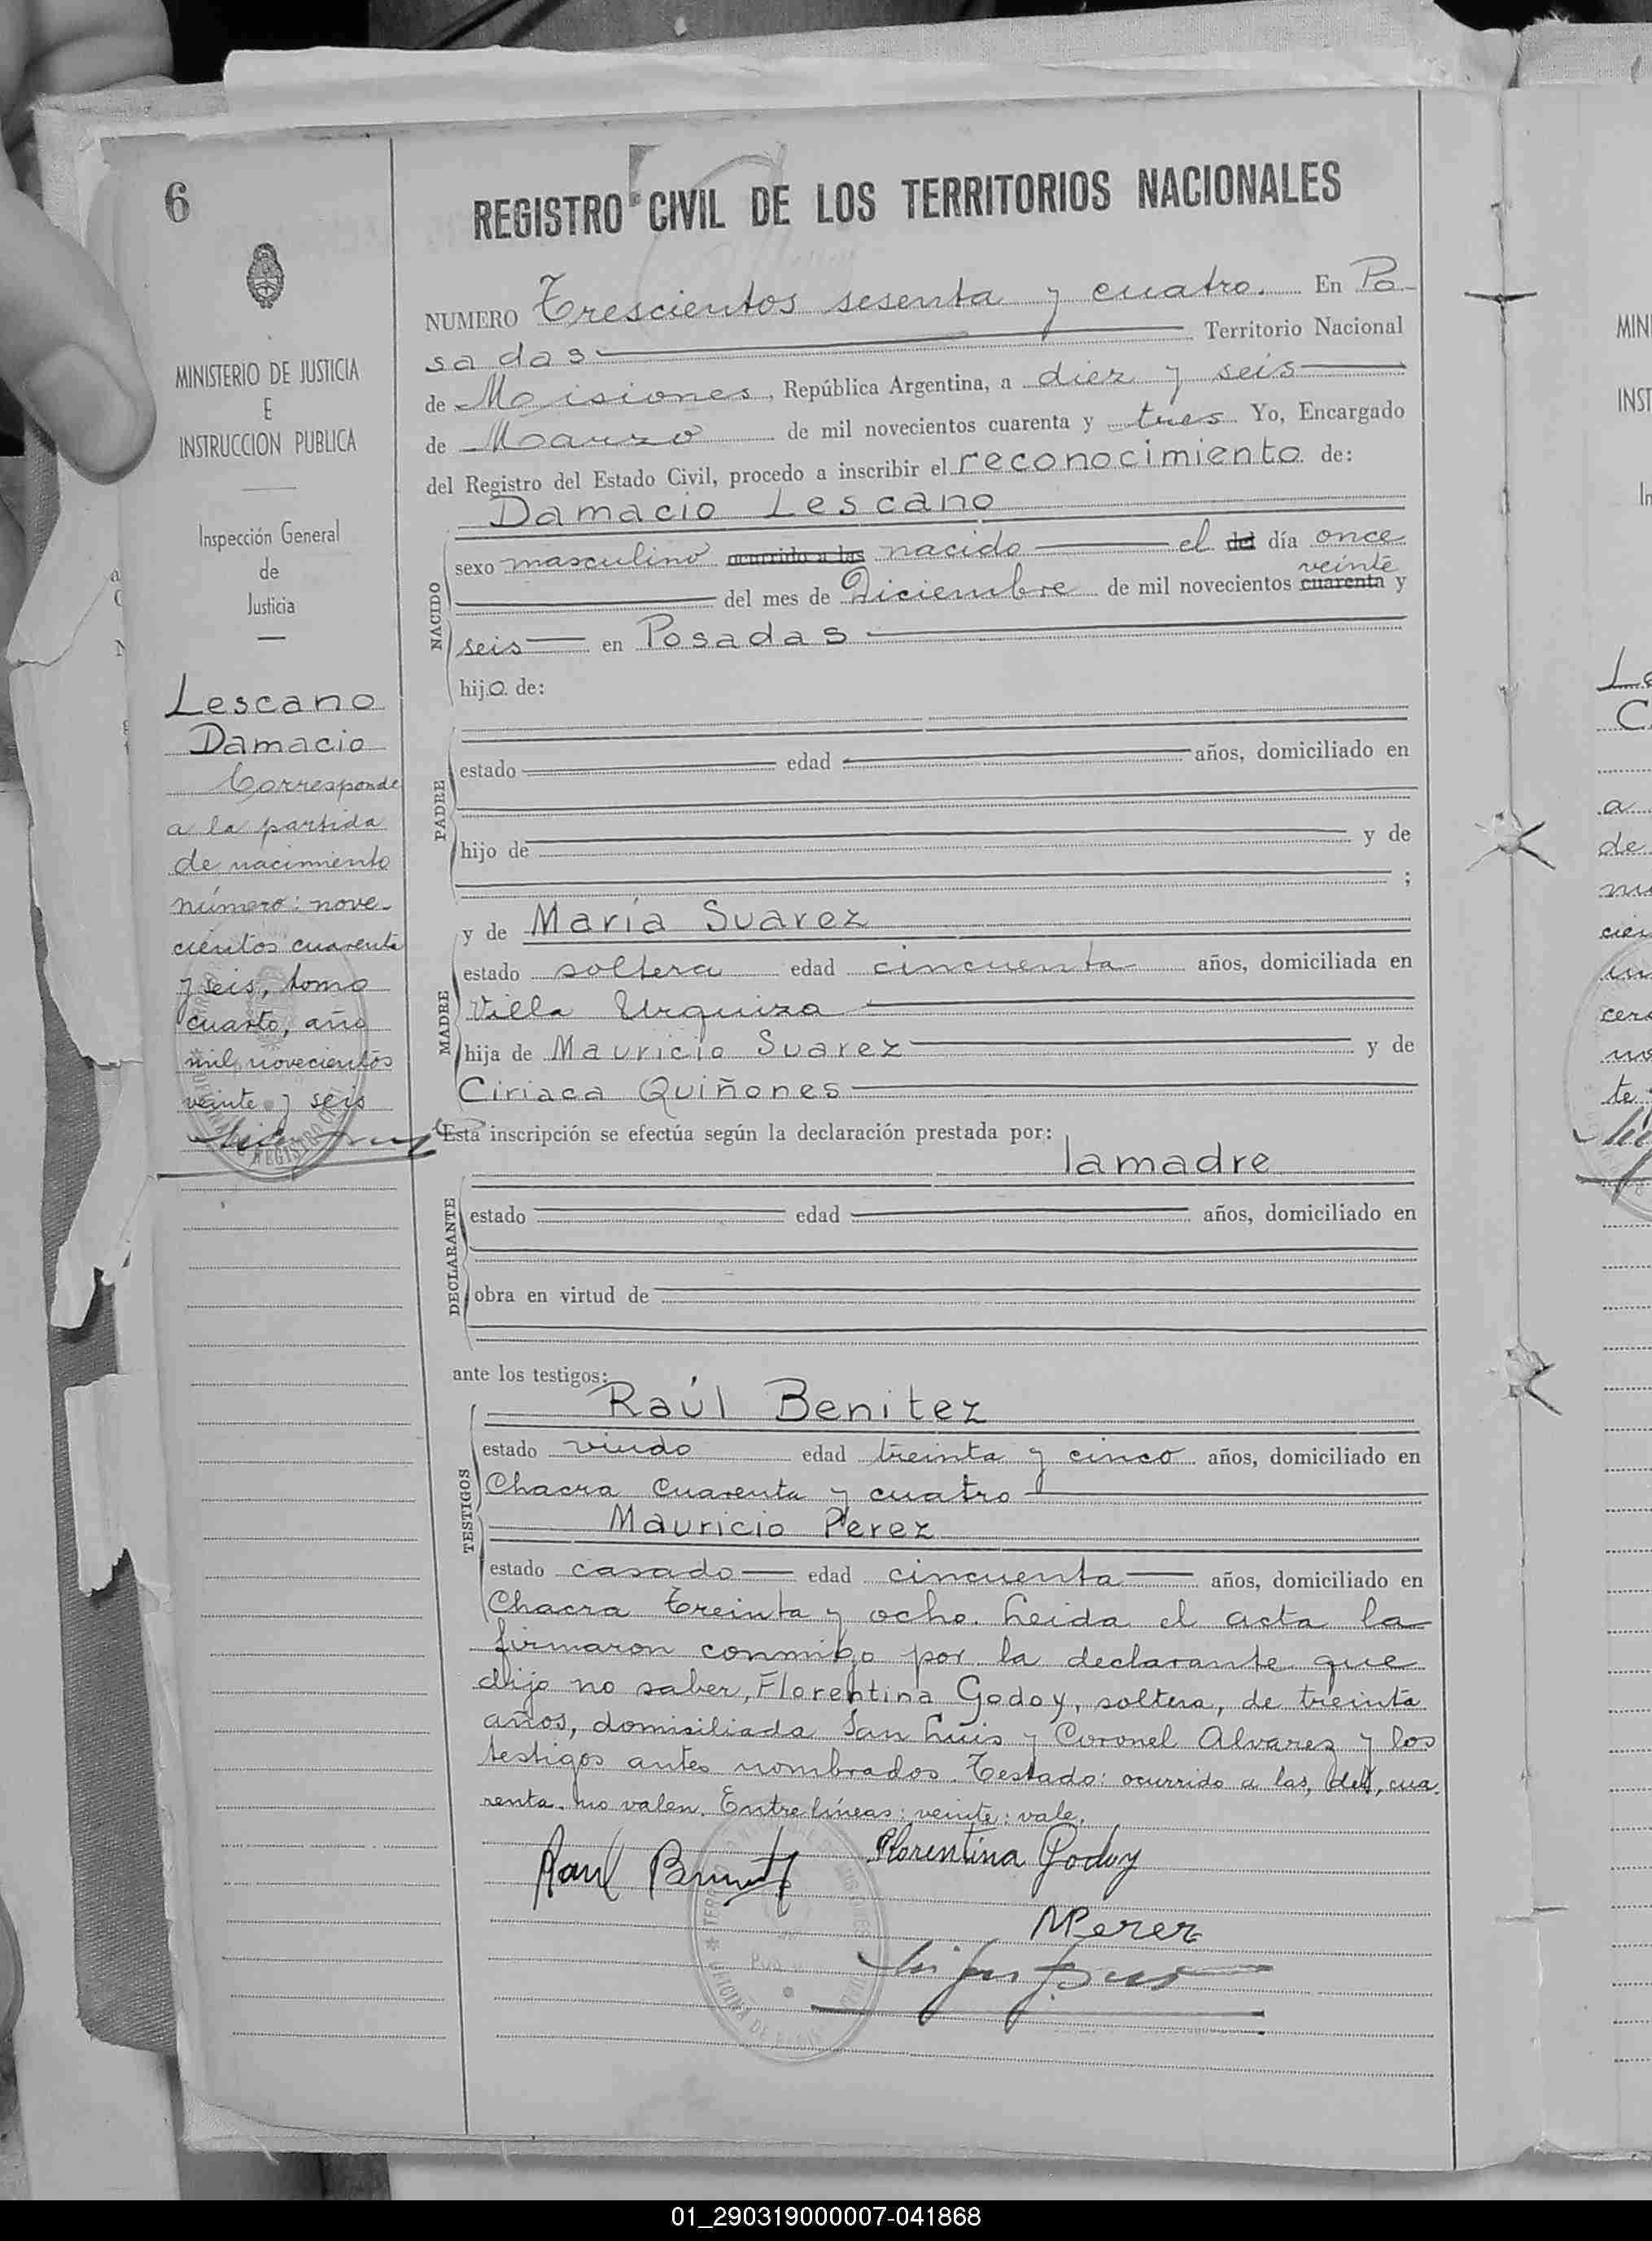 6
MINISTERIO DE JUSTICIA
E
INSTRUCCION PUBLICA
Inspección General
de
Justicia
Lescano
Damacio
Corresponde
a la partida
de nacimiento
número: nove-
cientos cuarenta
y seis, tomo
cuarto, año
mil novecientos
veinte y seis
REGISTRO CIVIL DE LOS TERRITORIOS NACIONALES
NUMERO Trescientos sesenta y cuatro. En Po-
sadas Territorio Nacional
de Misiones, República Argentina, a diez y seis
de Marzo de mil novecientos cuarenta y tres Yo, Encargado
del Registro del Estado Civil, procedo a inscribir el reconocimiento de:
Damacio Lescano
NACIDO
sexo masculino ocurrido a las nacido el del día once
veinte
del mes de Diciembre de mil novecientos cuarenta y
seis en Posadas
hijo de:
PADRE
estado edad años, domiciliado en
hijo de y de
;
MADRE
y de María Suarez
estado soltera edad cincuenta años, domiciliada en
Villa Urquiza
hija de Mauricio Suarez y de
Ciriaca Quiñones
Esta inscripción se efectúa según la declaración prestada por:
la madre
DECLARANTE
estado edad años, domiciliado en
obra en virtud de
ante los testigos:
TESTIGOS
Raúl Benitez
estado viudo edad treinta y cinco años, domiciliado en
Chacra Cuarenta y cuatro
Mauricio Perez
estado casado edad cincuenta años, domiciliado en
Chacra Treinta y ocho. Leida el acta la
firmaron conmigo por la declarante que
dijo no saber, Florentina Godoy, soltera, de treinta
años, domisiliada San Luis y Coronel Alvarez y los
testigos antes nombrados. Testado: ocurrido a las, del, cua-
renta. no valen. Entre líneas: veinte: vale.
Raul Benitez
Florentina Godoy
MPerez
01_290319000007-041868